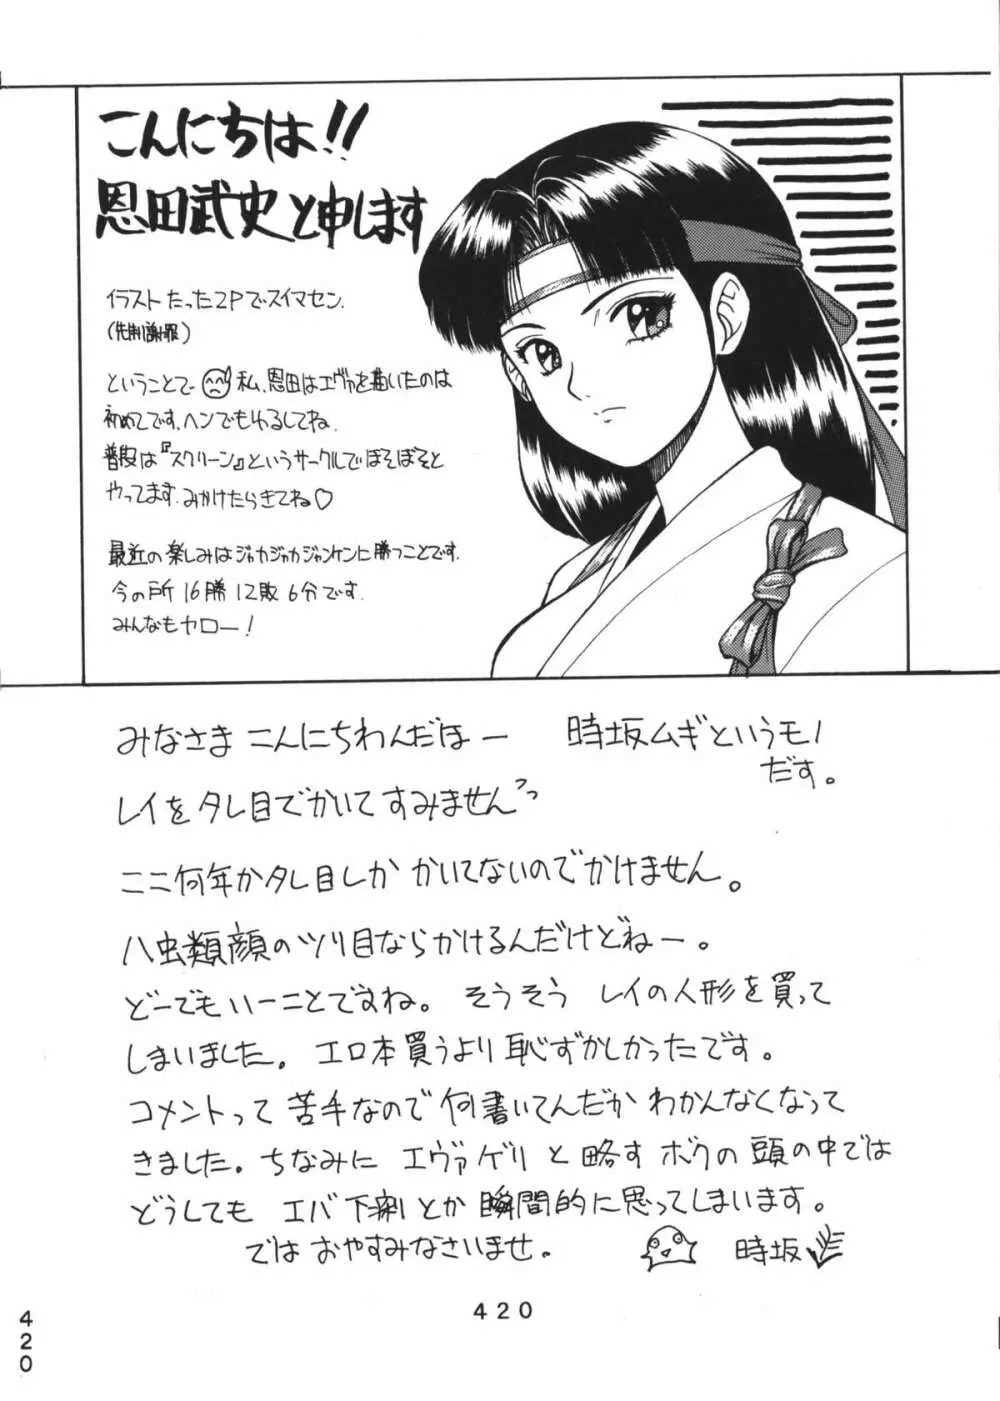 こんにちは!!
恩田武史と申します
イラストたった2Pでスイマセン.
(先制謝罪)
ということで 私、恩田はエヴァを描いたのは
初めてです。ヘンでもゆるしてね.
普段は『スクリーン』というサークルでぼそぼそと
やってます.みかけたらきてね♡
最近の楽しみはジャカジャカジャンケンに勝つことです.
今の所16勝12敗6分です.
みんなもヤロー!
みなさまこんにちわんだほー 時坂ムギというモノ
だす。
レイをタレ目でかいてすみませんっっ
ここ何年かタレ目しか かいてないのでかけません。
ハ虫類顔のツリ目ならかけるんだけどねー。
どーでもいーことですね。そうそう レイの人形を買って
しまいました。エロ本買うより恥ずかしかったです。
コメントって苦手なので何書いてんだか わかんなくなって
きました。ちなみに エヴァゲリ と略す ボクの頭の中では
どうしても エバ下痢とか瞬間的に思ってしまいます。
では おやすみなさいませ。 時坂
420
420